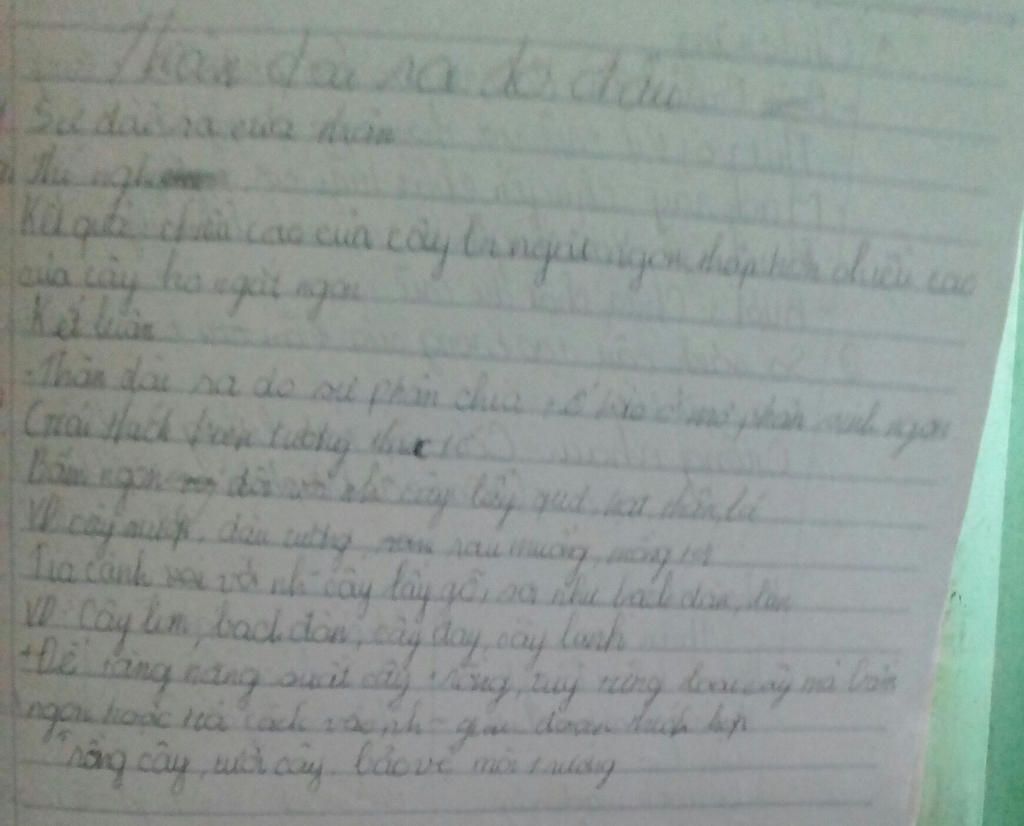 Thân dài ra do đâu
Sự dài ra của thân
Thí nghiệm
Kết quả: chiều cao của cây bị ngắt ngọn thấp hơn chiều cao
của cây ko ngắt ngọn
Kết luận
- Thân dài ra do sự phân chia tế bào ở mô phân sinh ngọn
Giải thích hiện tượng thực tế
Bấm ngọn đối với những cây lấy quả, hạt, thân, lá
VD: cây mướp, đậu tương, rau muống, mồng tơi
Tỉa cành với cây lấy gỗ, sợi như bạch đàn, lim
VD: Cây lim, bạch đàn, cây đay, cây lanh
+ Để tăng năng suất cây trồng, tuỳ từng loại cây mà bấm
ngọn hoặc tỉa cành vào giai đoạn thích hợp
trồng cây, tưới cây, bảo vệ môi trường